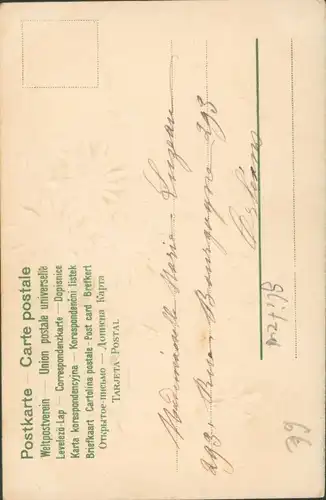 Postkarte — Carte postale
Weltpostverein — Union postale universelle
Levelező-Lap — Correspondenzkarte — Dopisnice
Karta korespondencyjna — Korespondenční lístek
Briefkaart Cartolina postale - Post card Brefkort
Открытое письмо — Дописна Карта
TARJETA POSTAL
Mademoiselle Maria
293. Rue Bourgogne 293
Orléans
39